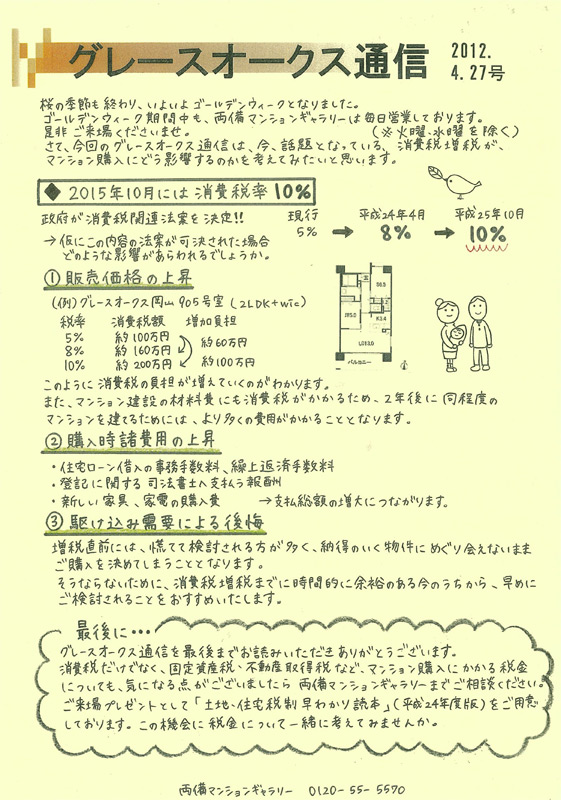 グレースオークス通信 2012.
4.27号
桜の季節も終わり、いよいよゴールデンウィークとなりました。
ゴールデンウィーク期間中も、両備マンションギャラリーは毎日営業しております。
是非ご来場くださいませ。 (※火曜、水曜を除く)
さて、今回のグレースオークス通信は、今、話題となっている、消費税増税が、
マンション購入にどう影響するのかを考えてみたいと思います。
◆ 2015年10月には消費税率10%
政府が消費税関連法案を決定!!
現行 平成24年4月 平成25年10月
5% → 8% → 10%
→仮にこの内容の法案が可決された場合
どのような影響があらわれるでしょうか。
① 販売価格の上昇
(例)グレースオークス岡山905号室(2LDK+wic)
税率 消費税額 増加負担
5% 約100万円
8% 約160万円 約60万円
10% 約200万円 約100万円
バルコニー
このように消費税の負担が増えていくのがわかります。
また、マンション建設の材料費にも消費税がかかるため、2年後に同程度の
マンションを建てるためには、より多くの費用がかかることとなります。
② 購入時諸費用の上昇
・住宅ローン借入の事務手数料、繰上返済手数料
・登記に関する司法書士へ支払う報酬
・新しい家具、家電の購入費 →支払総額の増大につながります。
③ 駆け込み需要による後悔
増税直前には、慌てて検討される方が多く、納得のいく物件にめぐり会えないまま
ご購入を決めてしまうこととなります。
そうならないために、消費税増税までに時間的に余裕のある今のうちから、早めに
ご検討されることをおすすめいたします。
最後に…
グレースオークス通信を最後までお読みいただきありがとうございます。
消費税だけでなく、固定資産税・不動産取得税など、マンション購入にかかる税金
についても、気になる点がございましたら両備マンションギャラリーまでご相談ください。
ご来場プレゼントとして「土地・住宅税制早わかり読本」(平成24年度版)をご用意
しております。この機会に税金について一緒に考えてみませんか。
両備マンションギャラリー 0120-55-5570